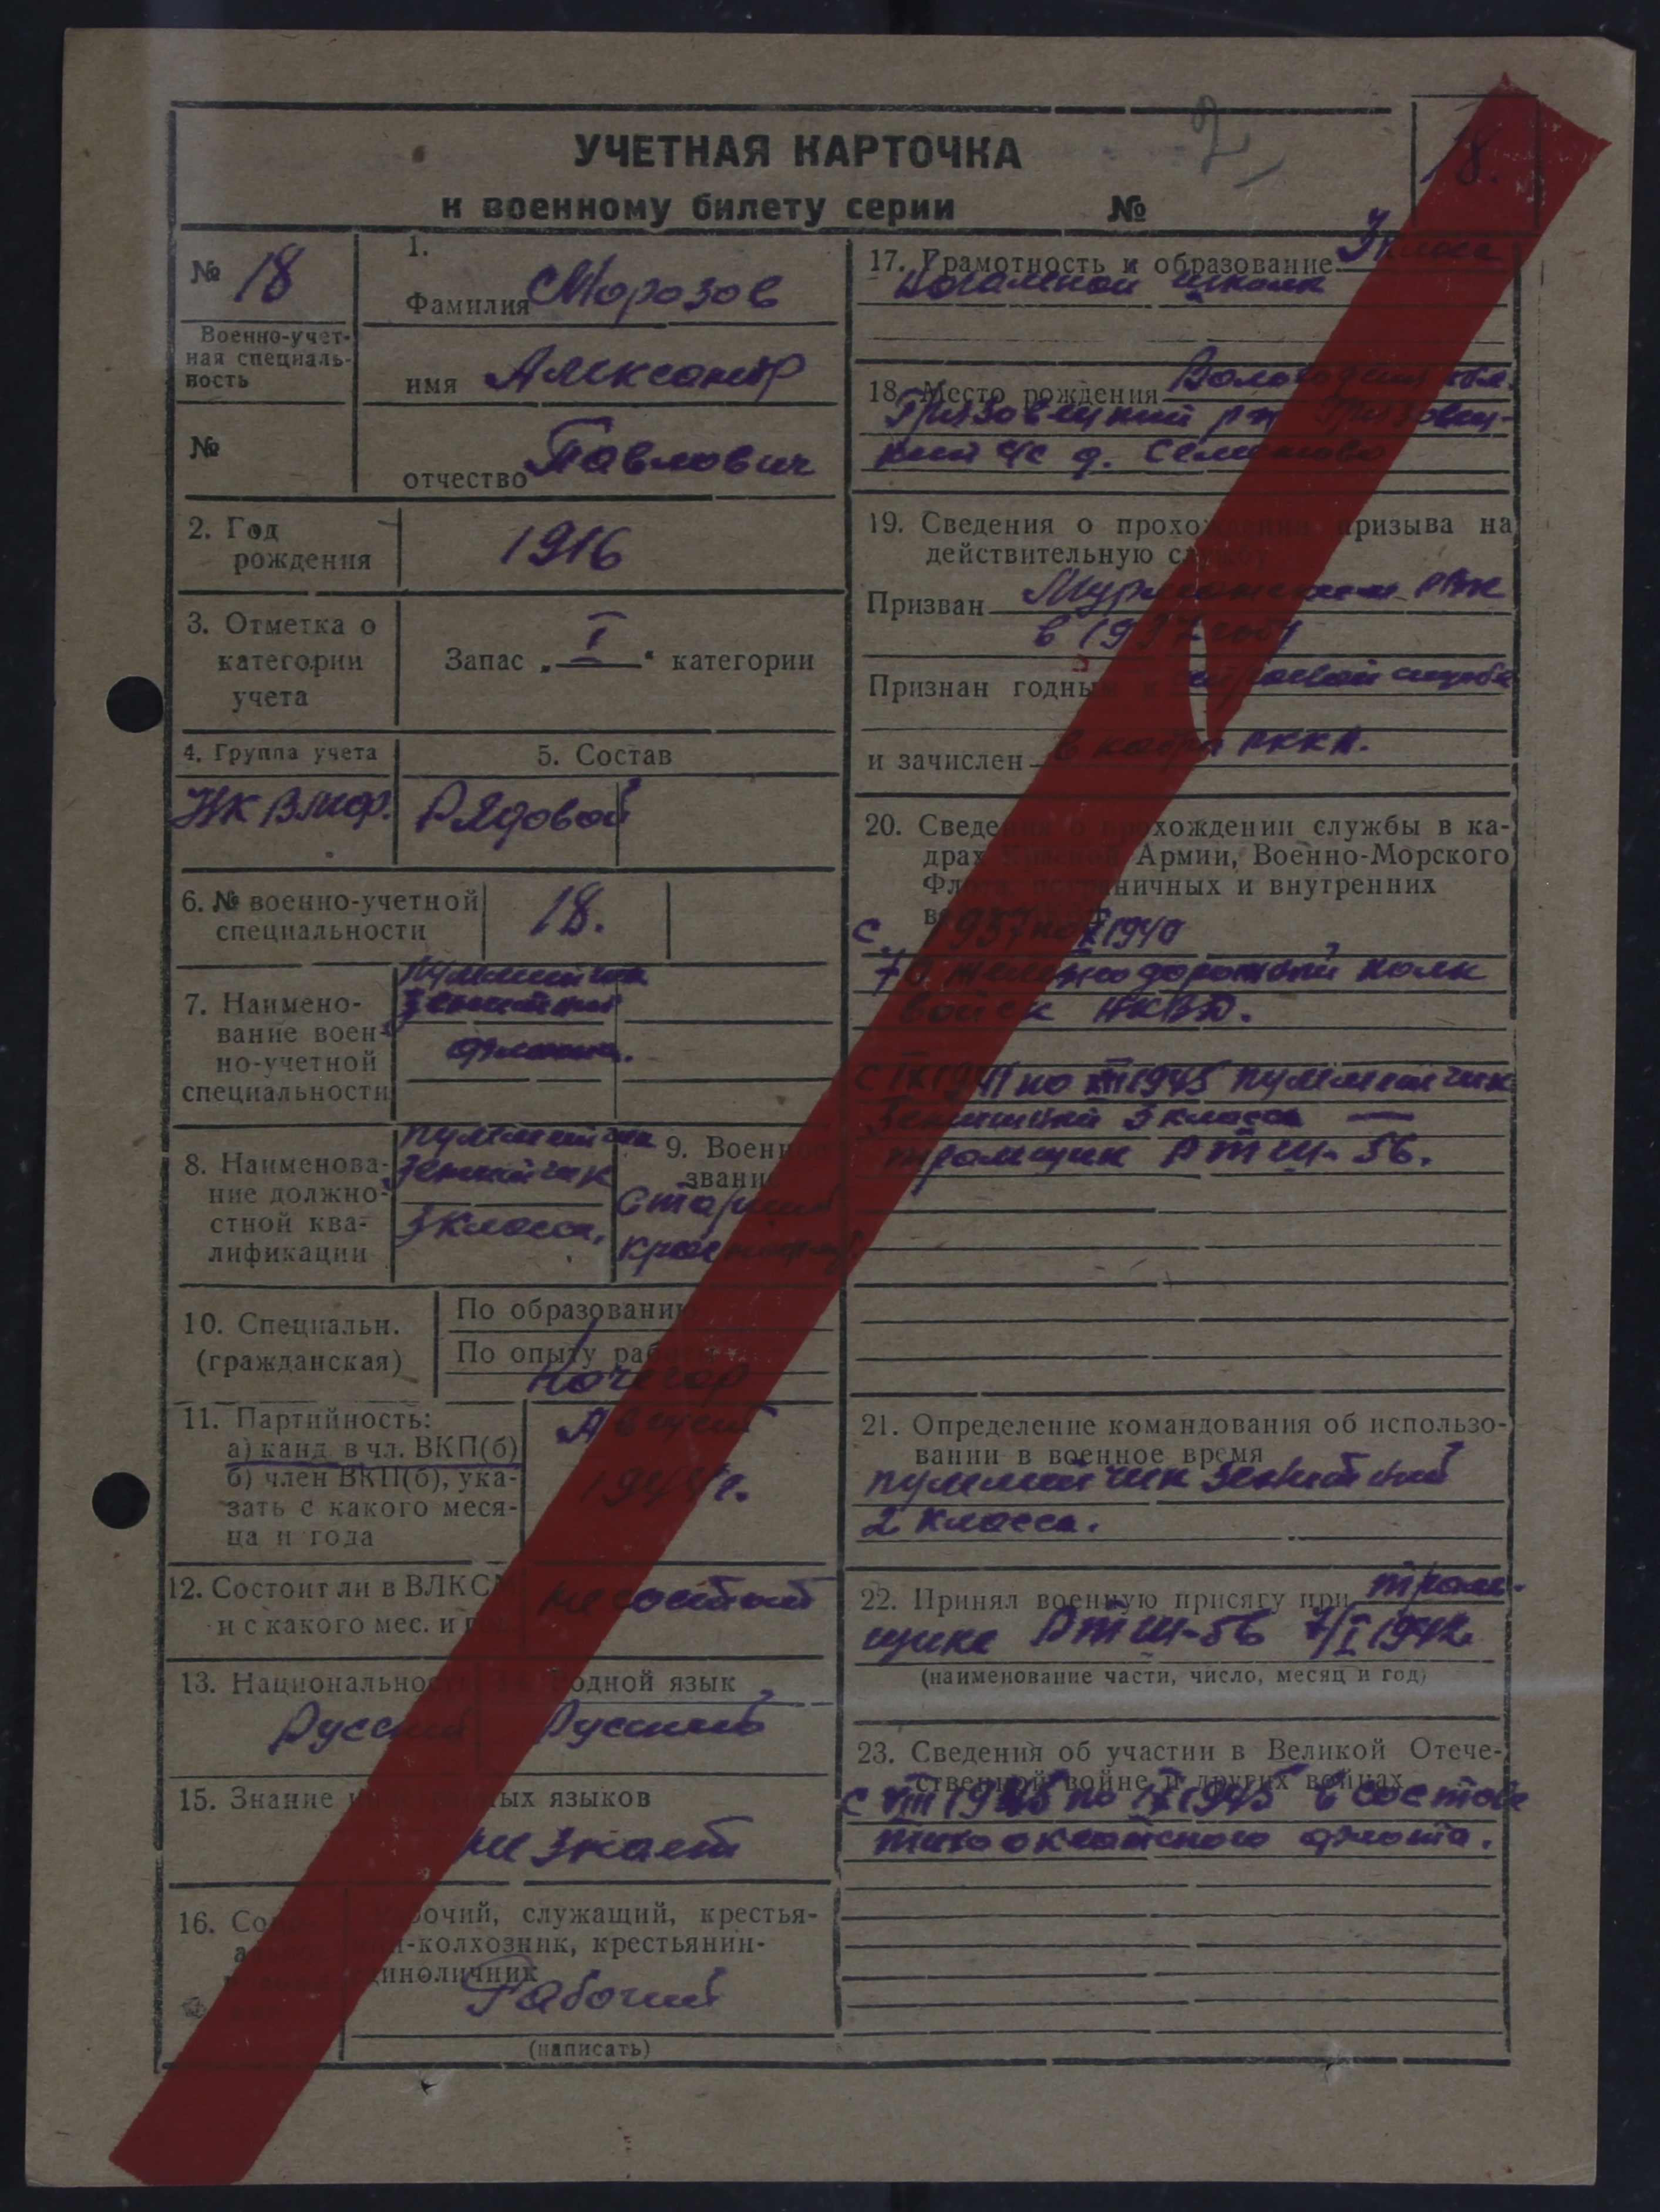 2,
18.
УЧЕТНАЯ КАРТОЧКА
к военному билету серии №
№ 18
Военно-учет-
ная специаль-
ность
№
1.
Фамилия Морозов
имя Александр
отчество Павлович
2. Год
рождения
1916
3. Отметка о
категории
учета
Запас „ I “ категории
4. Группа учета
НК ВМФ.
5. Состав
Рядовой
6. № военно-учетной
специальности
18.
7. Наимено-
вание воен-
но-учетной
специальности
пулеметчик
зенитный
флота.
8. Наименова-
ние должно-
стной ква-
лификации
пулеметчик
зенитчик
3 класса.
9. Военное
звание
Старший
краснофл.
10. Специальн.
(гражданская)
По образованию
По опыту работы
Кочегар
11. Партийность:
а) канд. в чл. ВКП(б)
б) член ВКП(б), ука-
зать с какого меся-
ца и года
Август
1944 г.
12. Состоит ли в ВЛКСМ
и с какого мес. и
не состоит
13. Национальность
Русский
14. Родной язык
Русский
15. Знание иностранных языков
не знает
16. Соци-
Рабочий, служащий, крестья-
нин-колхозник, крестьянин-
единоличник
Рабочий
(написать)
17. Грамотность и образование 3 класса
школы
18. Место рождения Вологодская обл.
Грязовецкий р-н Грязовец-
кий с/с д.
19. Сведения о прохождении призыва на
действительную службу
Призван Мурманским РВК
в 1937 году
Признан годным к строевой службе
и зачислен в кадры РККА.
20. Сведения о прохождении службы в ка-
драх Красной Армии, Военно-Морского
Флота, пограничных и внутренних
с 1937 по 1940
железнодорожный полк
войск НКВД.
с IX 1941 по 1945 пулеметчик
зенитный 3 класса —
тральщик РТЩ-56.
21. Определение командования об использо-
вании в военное время
пулеметчик зенитный
2 класса.
22. Принял военную присягу при траль-
щике РТЩ-56 7/I 1942
(наименование части, число, месяц и год)
23. Сведения об участии в Великой Отече-
ственной войне и других войнах
с VIII 1945 по IX 1945 в составе
тихоокеанского флота.